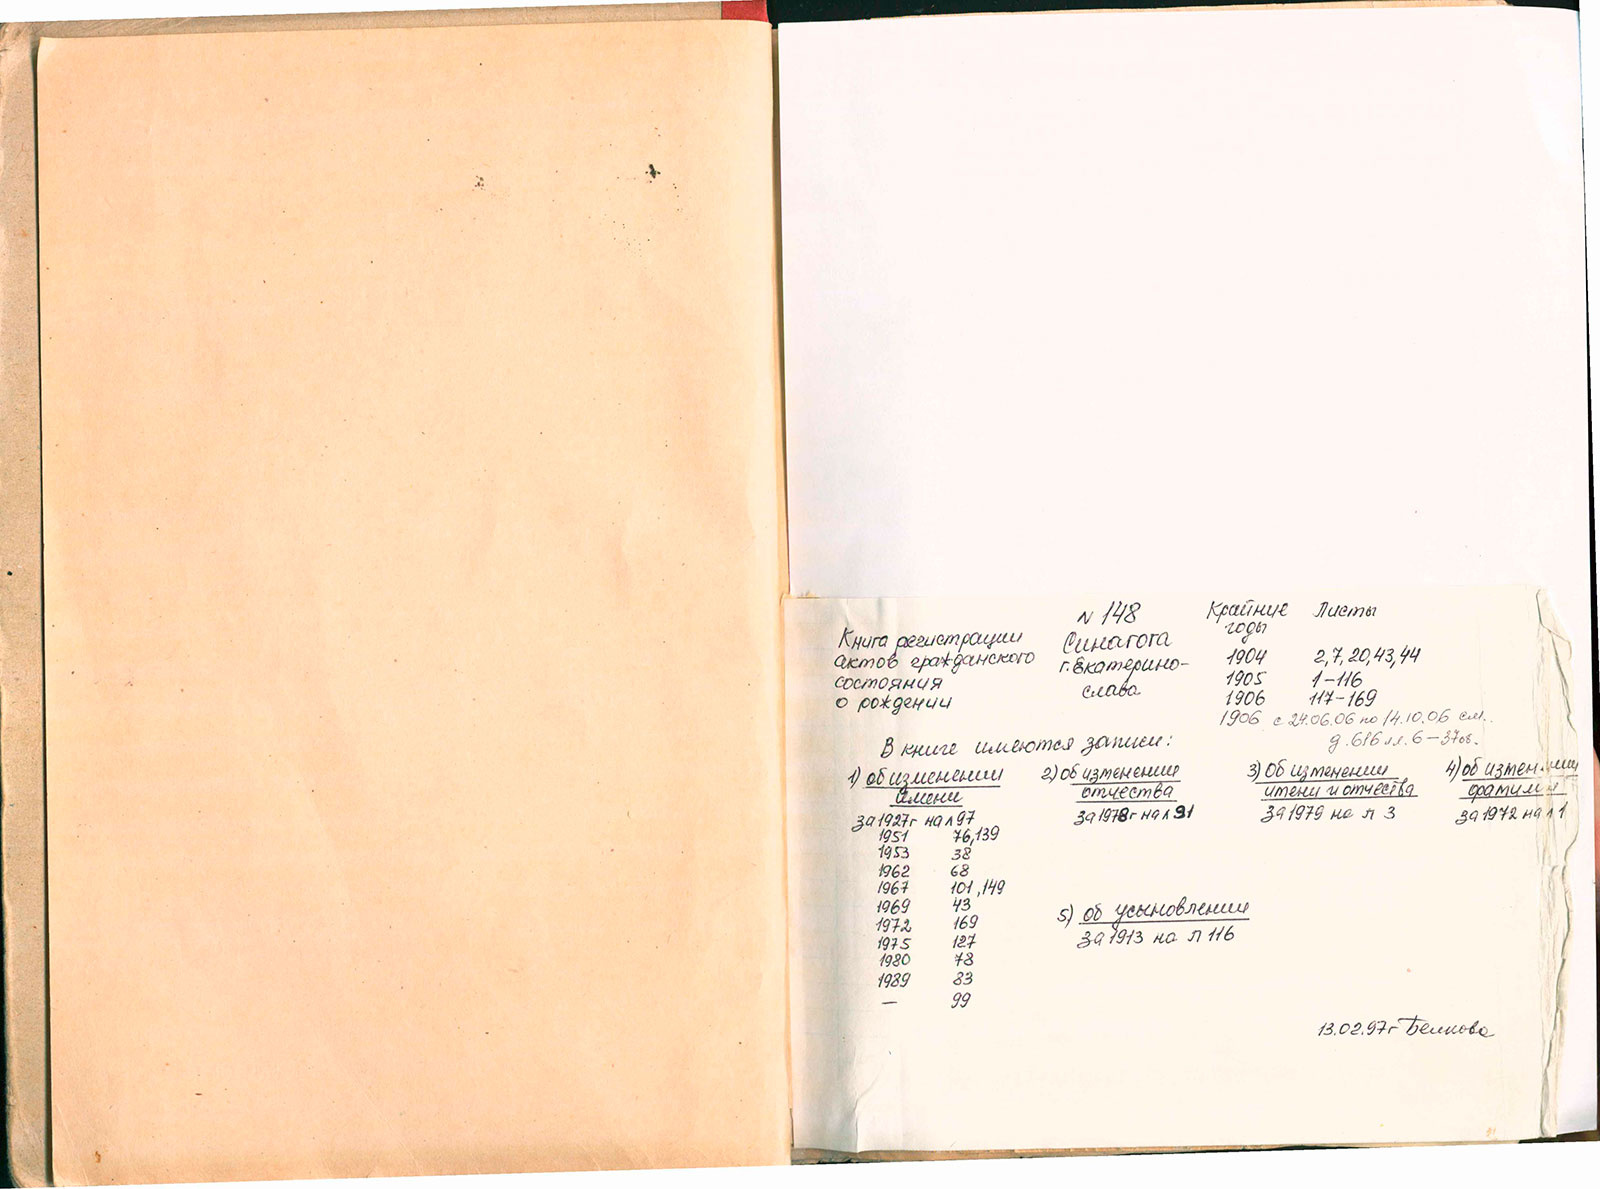 N 148
Крайние Листы
годы
Книга регистрации
актов гражданского
состояния
о рождении
Синагога
г. Екатерино-
слава
1904 2,7,20,43,44
1905 1-116
1906 117-169
1906 с 24.06.06 по 14.10.06 см.
д. 616 лл. 6-37об.
В книге имеются записи:
1) об изменении
имени
за 1927г на л 97
1951 76,139
1953 38
1962 68
1967 101,149
1969 43
1972 169
1975 127
1980 78
1989 83
— 99
2) об изменении
отчества
за 1978г на л 91
3) об изменении
имени и отчества
за 1979 на л 3
4) об изменении
фамилии
за 1972 на л 1
5) об усыновлении
за 1913 на л 116
13.02.97г